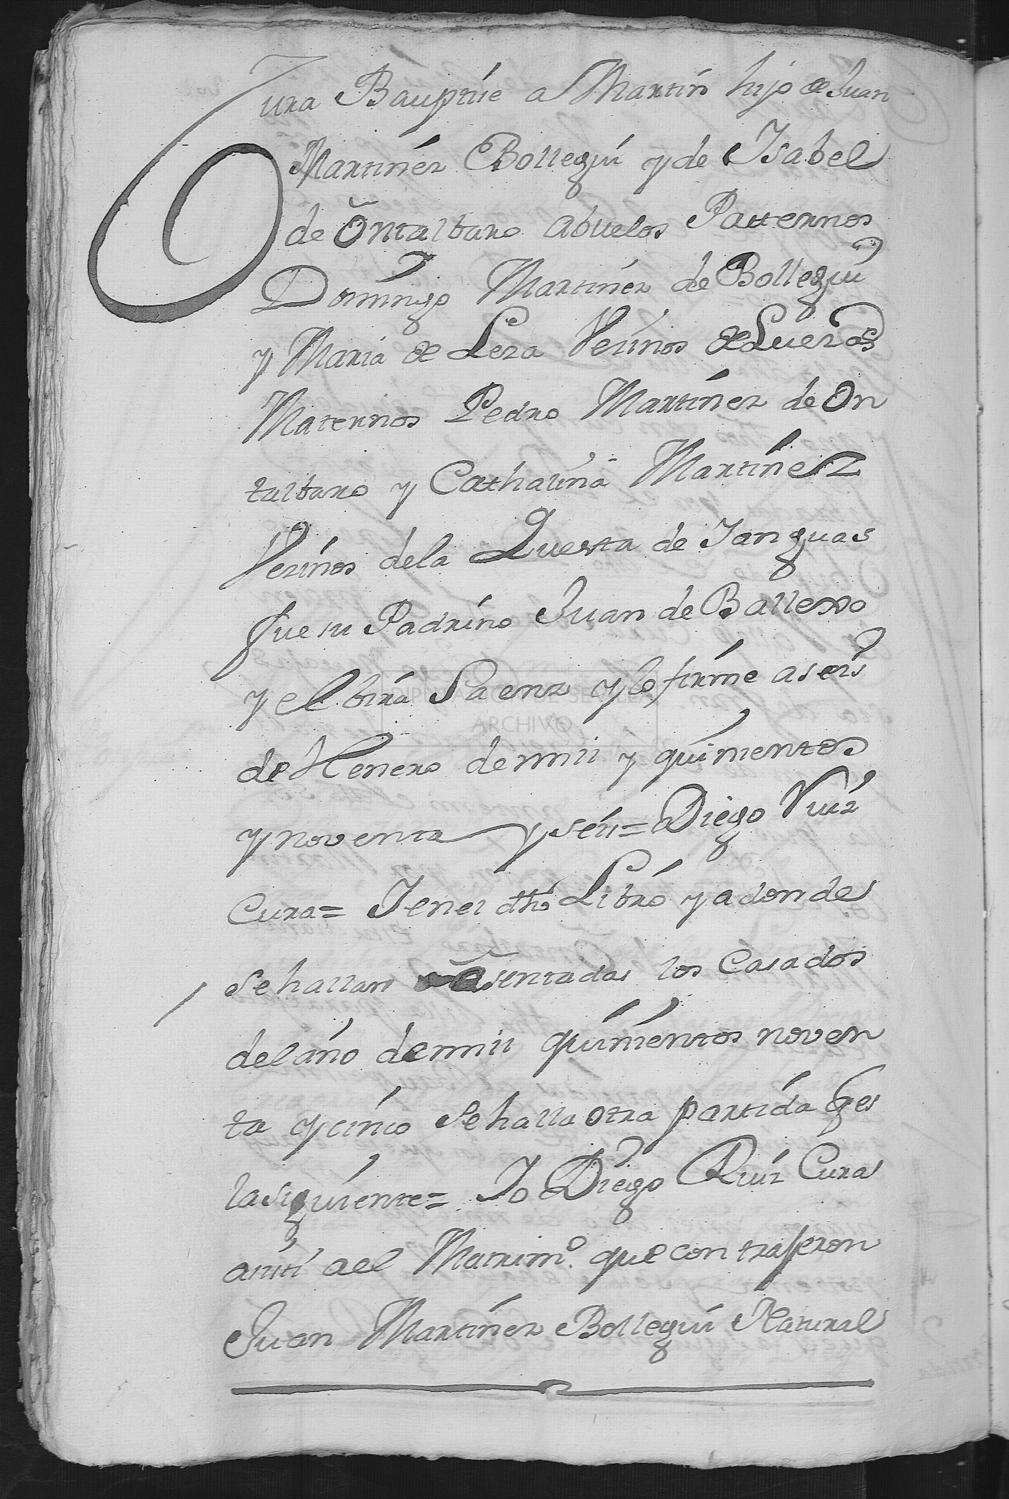 Cura Bauptiie a Martin hijo de Juan
Martinez Bollegui y de Isabel
de Ontalbaro abuelos Patternos
Domingo Martinez de Bollegui
y Maria de Lera Vezinos de Lueras
Maternos Pedro Martinez de On
talbaro y Cathalina Martinez
Vezinos dela Questa de Ianguas
fue su Padrino Juan de Ballexo
y elbira Saenz y lo firme aseis
de Henero demil y quinientos
y noventa y seis = Diego Ruiz
Cura = Ienel dho Libro y adonde
sehallan asentadas los Casados
delaño demil quinientos noven
ta ycinco Sehalla otra partida qe es
lasiguiente = Io Diego Ruiz Cura
asisti ael Matrimo. que contrajeron
Juan Martinez Bollegui Natural
DIPUTACIÓN DE SEVILLA
ARCHIVO